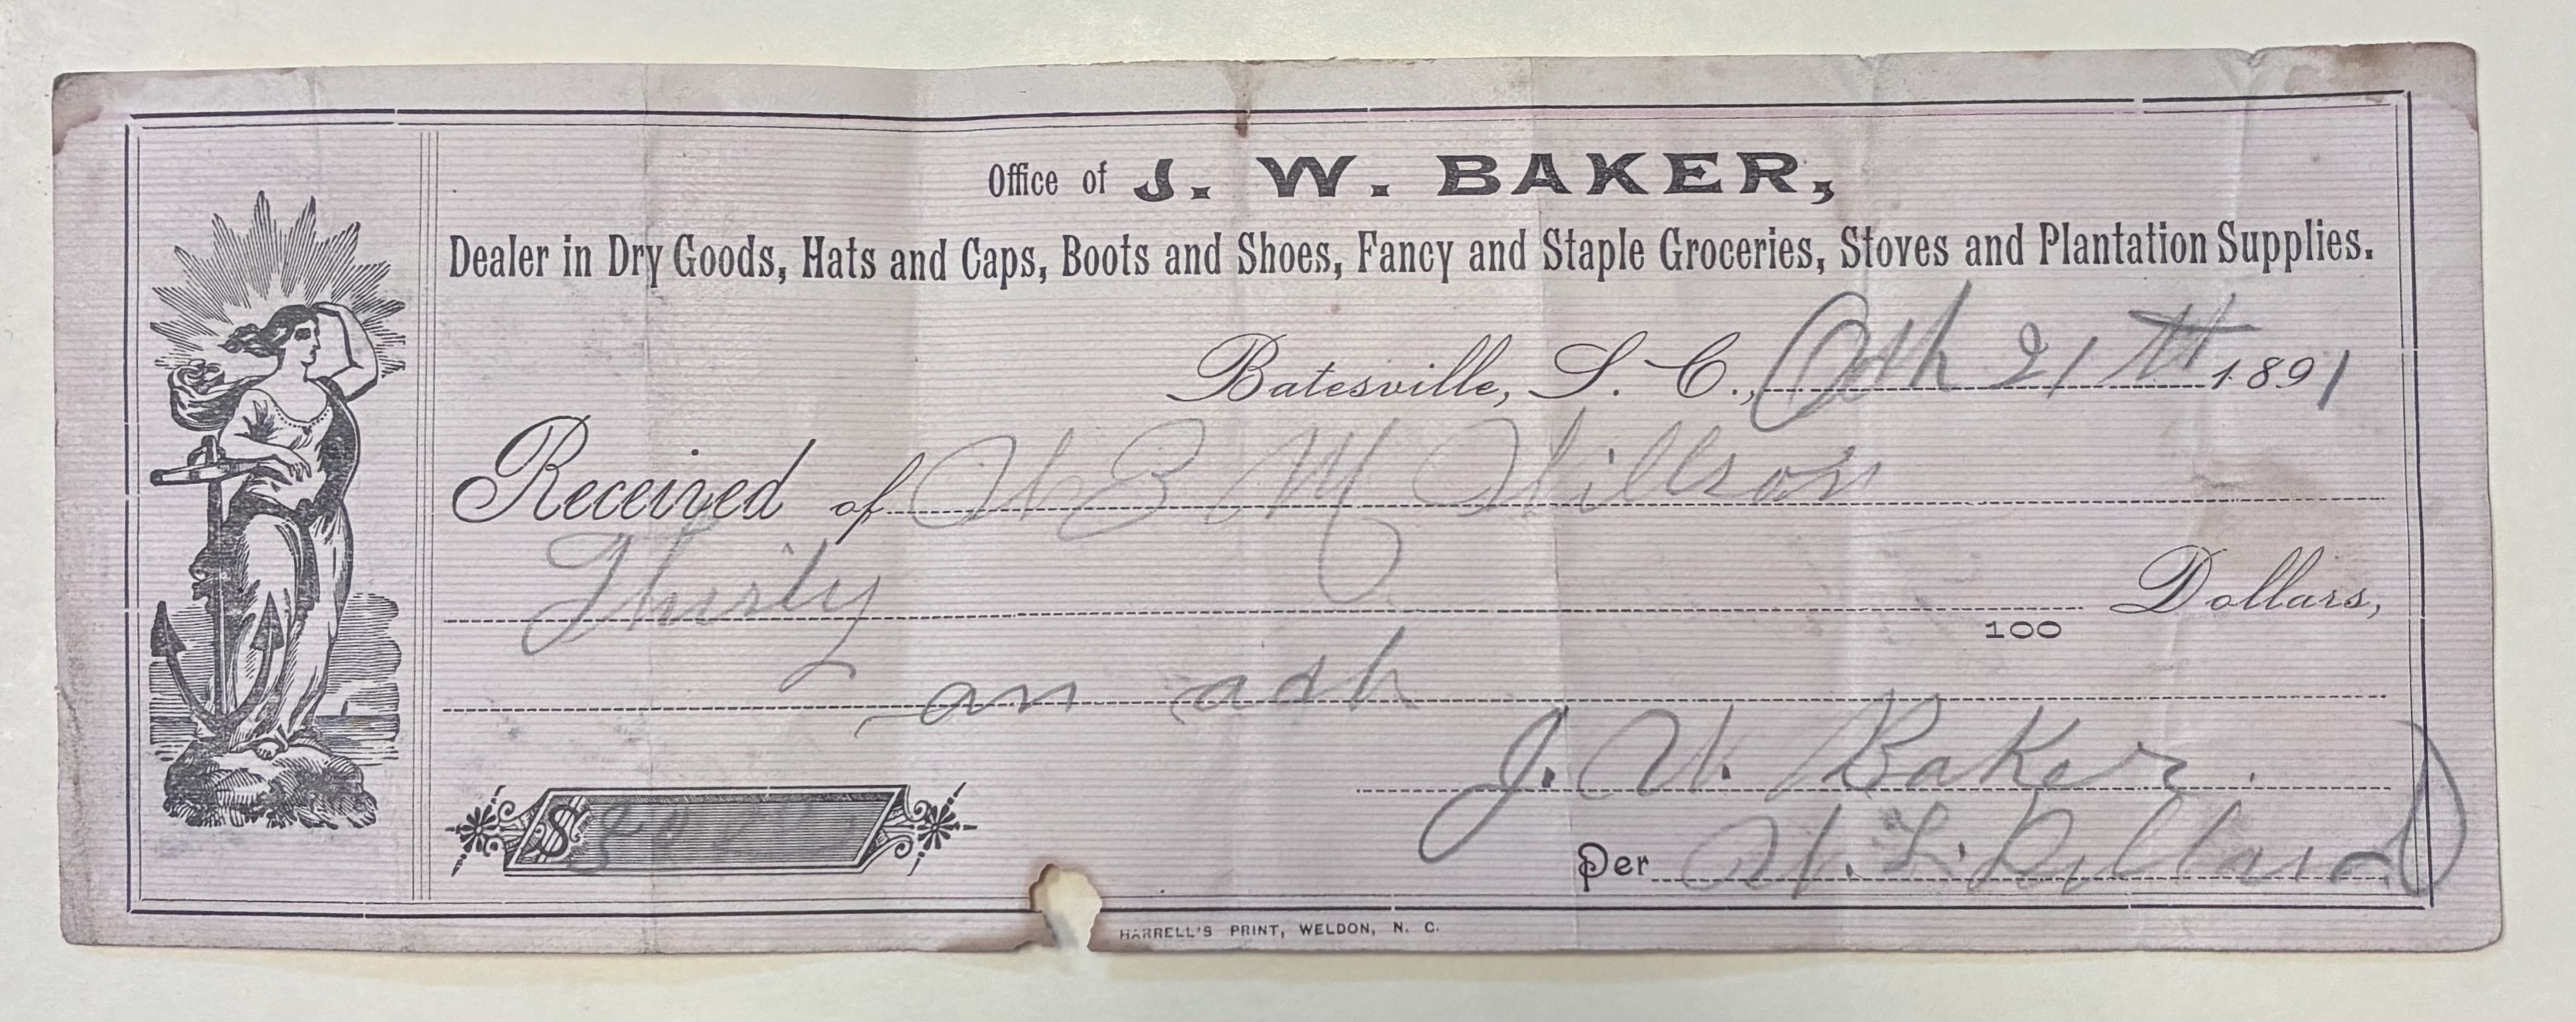 Office of J. W. BAKER,
Dealer in Dry Goods, Hats and Caps, Boots and Shoes, Fancy and Staple Groceries, Stoves and Plantation Supplies.
Batesville, S. C., 21 1891
Received of W B M Willson
Thirty 100 Dollars,
on
J. W. Baker.
$
Per W. L. Dillard
HARRELL'S PRINT, WELDON, N. C.